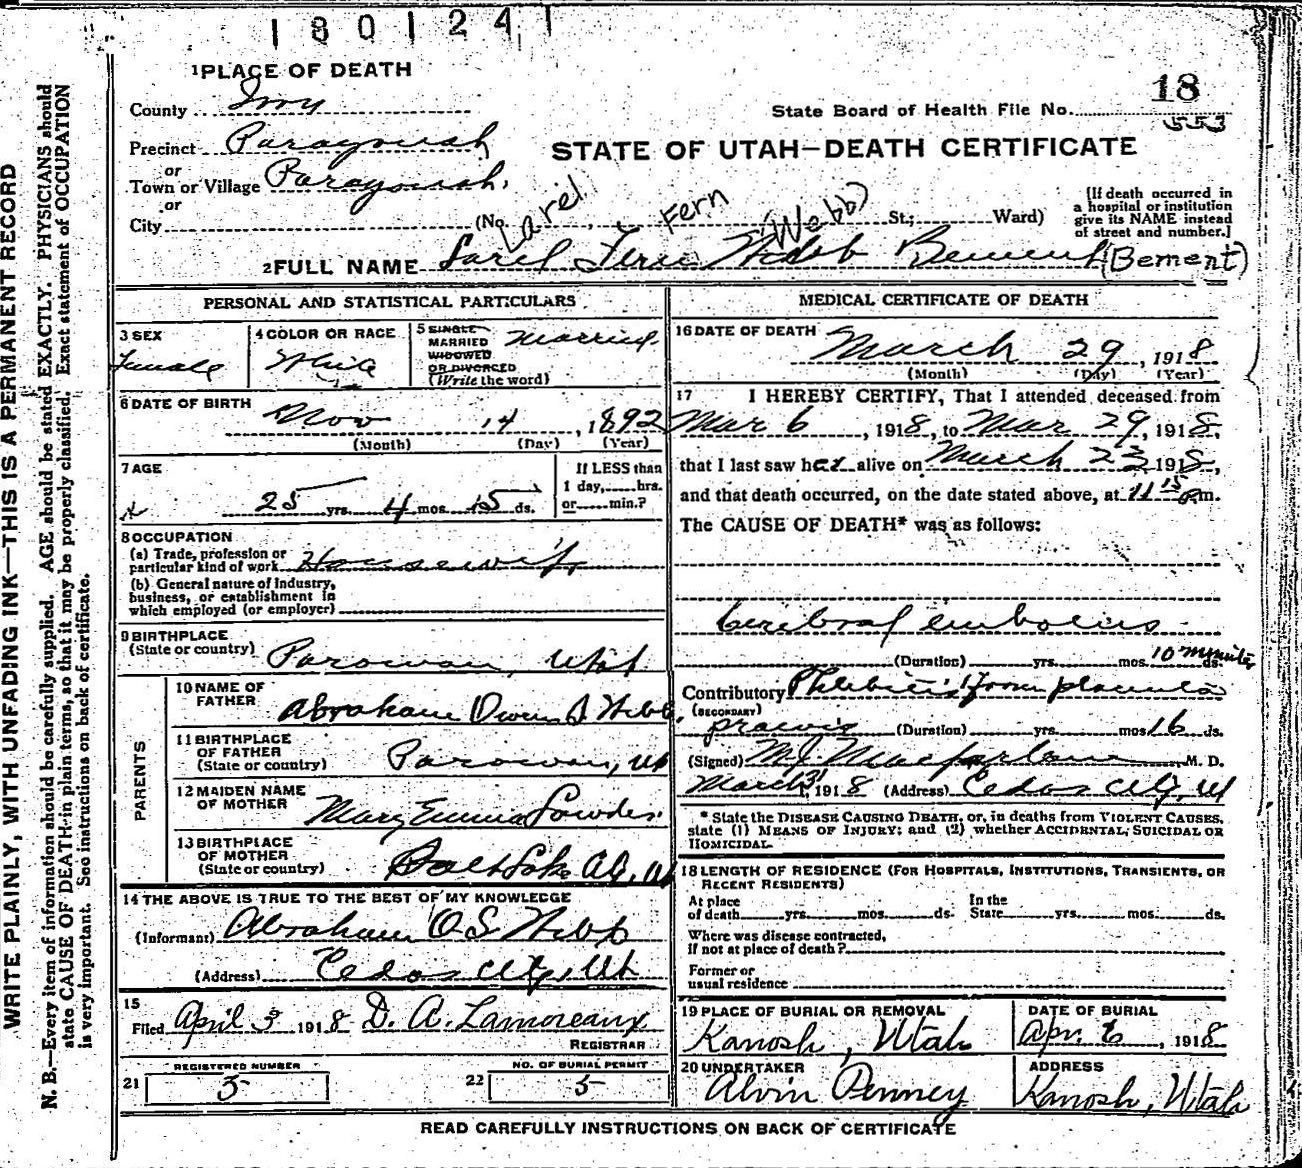 1 8 0 1 2 4 1
1 PLACE OF DEATH
18
County
State Board of Health File No.
553
Precinct Paragonah
STATE OF UTAH—DEATH CERTIFICATE
or
Town or Village Paragonah.
or
City (No. St.; Ward)
[If death occurred in
a hospital or institution
give its NAME instead
of street and number.]
Larel Fern (Webb)
2 FULL NAME Larel Fern Webb Bement (Bement)
PERSONAL AND STATISTICAL PARTICULARS
3 SEX
Female
4 COLOR OR RACE
White
5 SINGLE
MARRIED
WIDOWED
OR DIVORCED
(Write the word)
Married
6 DATE OF BIRTH
Nov 14, 1892
(Month) (Day) (Year)
7 AGE
25 yrs. 4 mos. 15 ds.
If LESS than
1 day, hrs.
or min.?
8 OCCUPATION
(a) Trade, profession or
particular kind of work Housewife
(b) General nature of industry,
business, or establishment in
which employed (or employer)
9 BIRTHPLACE
(State or country)
Parowan, Utah
PARENTS
10 NAME OF
FATHER
Abraham Owen S Webb
11 BIRTHPLACE
OF FATHER
(State or country)
Parowan, Ut
12 MAIDEN NAME
OF MOTHER
Mary Emma Lowder
13 BIRTHPLACE
OF MOTHER
(State or country)
Salt Lake City, Ut
14 THE ABOVE IS TRUE TO THE BEST OF MY KNOWLEDGE
(Informant) Abraham O S Webb
(Address) Cedar City, Ut
15
Filed April 3 1918 D. A. Lamoreaux
REGISTRAR
REGISTERED NUMBER
21 5
NO. OF BURIAL PERMIT
22 5
MEDICAL CERTIFICATE OF DEATH
16 DATE OF DEATH
March 29, 1918
(Month) (Day) (Year)
17 I HEREBY CERTIFY, That I attended deceased from
Mar 6, 1918, to Mar 29, 1918,
that I last saw her alive on March 23, 1918,
and that death occurred, on the date stated above, at 11 15 P.m.
The CAUSE OF DEATH* was as follows:
Cerebral embolus
(Duration) yrs. mos. 10 minutes ds.
Contributory Phlebitis from placenta
(SECONDARY)
praevia (Duration) yrs. mos. 16 ds.
(Signed) M. J. Macfarlane M. D.
March 31, 1918 (Address) Cedar City, Ut
* State the DISEASE CAUSING DEATH, or, in deaths from VIOLENT CAUSES,
state (1) MEANS OF INJURY; and (2) whether ACCIDENTAL, SUICIDAL OR
HOMICIDAL.
18 LENGTH OF RESIDENCE (FOR HOSPITALS, INSTITUTIONS, TRANSIENTS, OR
RECENT RESIDENTS)
At place
of death yrs. mos. ds.
In the
State yrs. mos. ds.
Where was disease contracted,
if not at place of death?
Former or
usual residence
19 PLACE OF BURIAL OR REMOVAL
Kanosh, Utah
DATE OF BURIAL
Apr. 6, 1918
20 UNDERTAKER
Alvin Penney
ADDRESS
Kanosh, Utah
READ CAREFULLY INSTRUCTIONS ON BACK OF CERTIFICATE
WRITE PLAINLY, WITH UNFADING INK—THIS IS A PERMANENT RECORD
N. B.—Every item of information should be carefully supplied. AGE should be stated EXACTLY. PHYSICIANS should
state CAUSE OF DEATH in plain terms, so that it may be properly classified. Exact statement of OCCUPATION
is very important. See instructions on back of certificate.